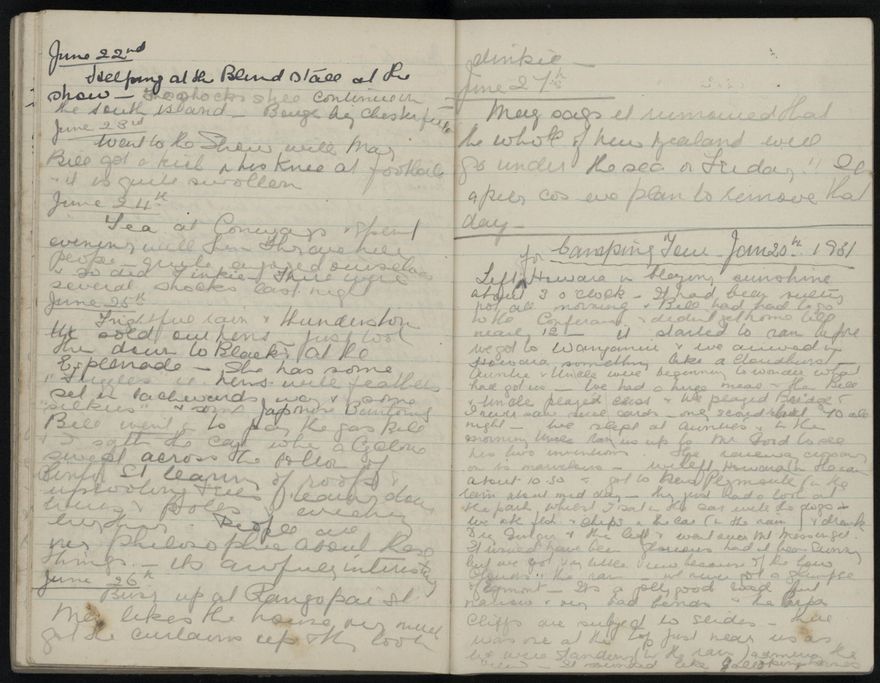 June 22nd
Helping at the Blind stall at the
show – shocks still continue in
the South Island – Bough
June 23rd
Went to the Show with May
Bill got a kick on his knee at football
& it is quite swollen
June 24th
Tea at Conways & spent
evening with
people quite enjoyed ourselves
& so did Tinkie. There were
several shocks last night
June 25th
Frightful rain & thunderstorm
We sold our hens – just took
them down to Black's at the
Esplanade – She has some
hens with feathers
set in backwards way & some
"silkies" & some Japanese Bantams
Bill went to pay the gas bill
& I sat in the car when a cyclone
swept across the
of roofs &
uprooting trees tearing down
& poles & wrecking
People are
very philosophic about these
things – its awfully interesting
June 26th
Busy up at Rangopai St
May likes the house very much
got the curtains up & they look
dinkie –
June 27th
May says it rumoured that
the whole of New Zealand will
go under the sea on Friday!!
a pity cos we plan to remove that
day –
for Camping Tour – June 30th 1931
Left Hawera in blazing sunshine
about 3 o'clock – It had been raining
all morning – Bill had had to go
to the Conference & didn't get home till
nearly 12 – it started to rain before
we got to Wanganui & we arrived in
Hawera something like a cloudburst –
Auntie & Uncle were beginning to wonder what
had got us – We had a huge meal & then Bill
& Uncle played chess & we played Bridge &
I never saw such cards – only scored 70 all
night – We slept at Aunties & in the
morning Uncle ran us up to Mr Ford to see
his two inventions. The railway crossing
one is marvelous – We left Hawera in the rain
about 10.30 & got to New Plymouth in the
rain about mid day – they just had a look at
the park whilst I sat in the car with the dogs &
we ate fish & chips in the car (in the rain) & drank
& left & went over Mt Messenger.
It would have been glorious had it been sunny
but we got very little view because of the low
clouds & the rain – we never got a glimpse
of Egmont – Its a jolly good road but
narrow & very bad bends & the
cliffs are subject to slides – there
was one at the top just near us as
we were standing in the rain admiring the
view – it sounded like galloping horses